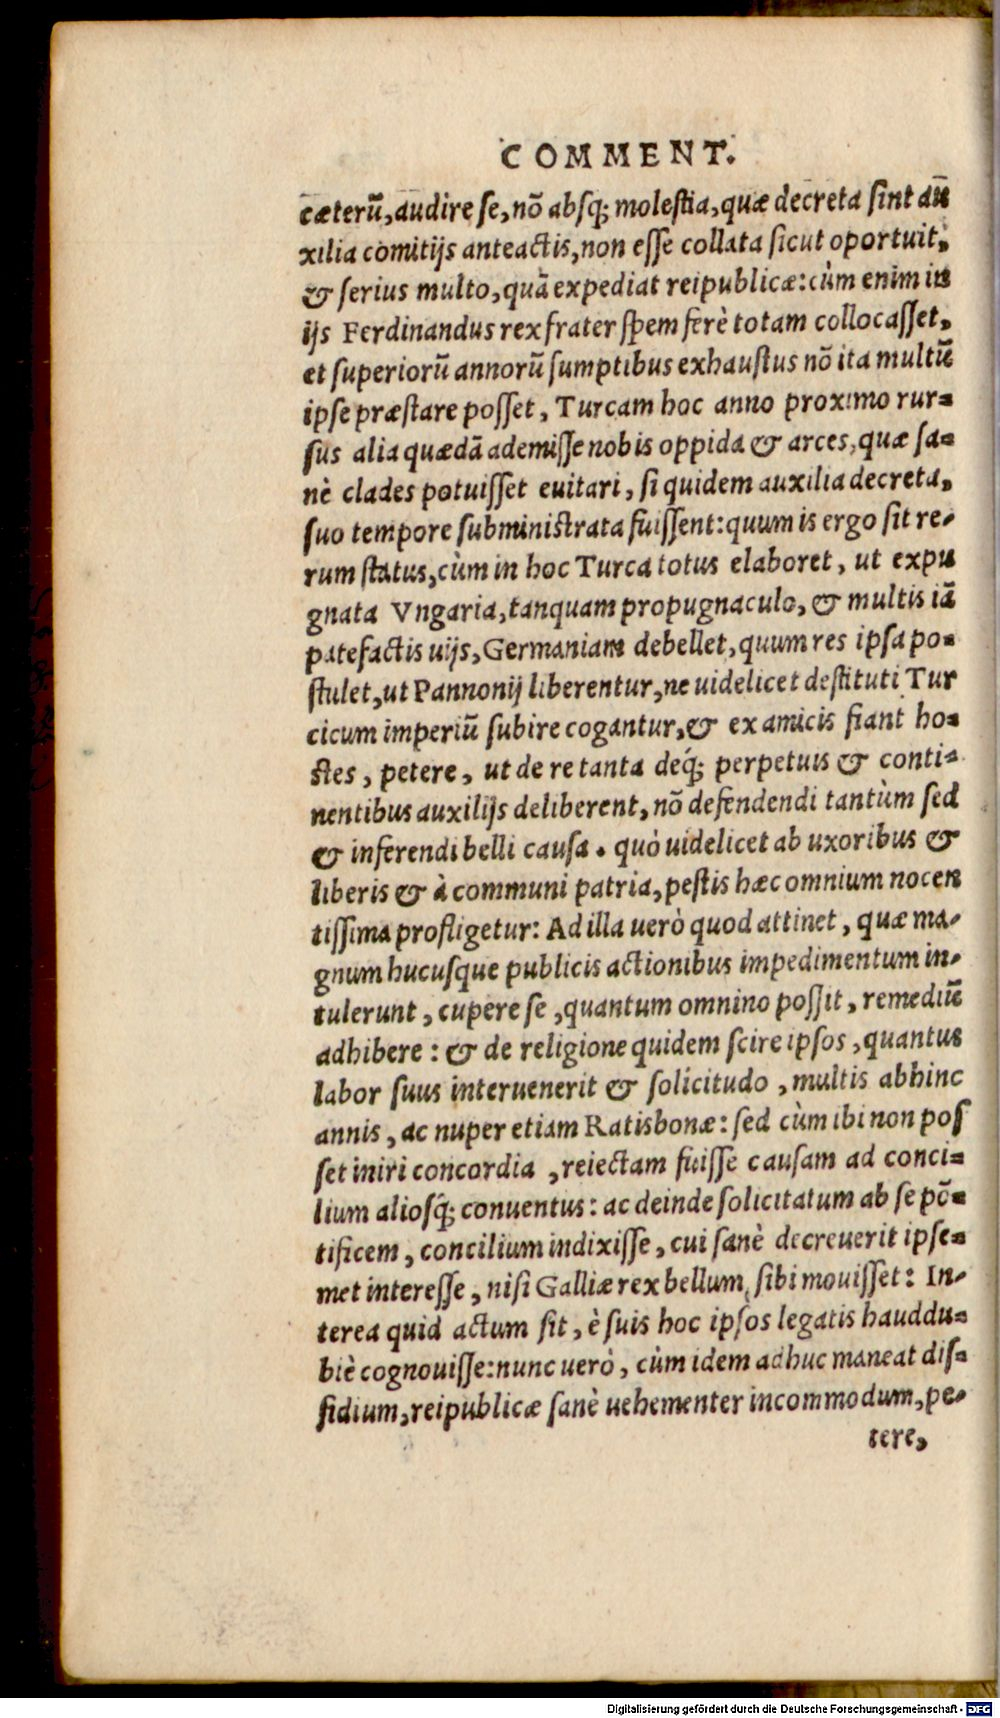 COMMENT.
cæterū, audire se, nō absq; molestia, quæ decreta sint au
xilia comitijs anteactis, non esse collata sicut oportuit,
& serius multo, quā expediat reipublicæ: cùm enim in
ijs Ferdinandus rex frater spem ferè totam collocasset,
et superiorū annorū sumptibus exhaustus nō ita multū
ipse præstare posset, Turcam hoc anno proximo rur-
sus alia quædā ademisse nobis oppida & arces, quæ sa-
nè clades potuisset euitari, si quidem auxilia decreta,
suo tempore subministrata fuissent: quum is ergo sit re-
rum status, cùm in hoc Turca totus elaboret, ut expu
gnata Vngaria, tanquam propugnaculo, & multis iā
patefactis uijs, Germaniam debellet, quum res ipsa po-
stulet, ut Pannonij liberentur, ne uidelicet destituti Tur
cicum imperiū subire cogantur, & ex amicis fiant ho-
stes, petere, ut de re tanta deq́; perpetuis & conti-
nentibus auxilijs deliberent, nō defendendi tantùm sed
& inferendi belli causa. quò uidelicet ab uxoribus &
liberis & à communi patria, pestis hæc omnium nocen
tissima profligetur: Ad illa uerò quod attinet, quæ ma-
gnum hucusque publicis actionibus impedimentum in-
tulerunt, cupere se, quantum omnino possit, remediū
adhibere: & de religione quidem scire ipsos, quantus
labor suus interuenerit & solicitudo, multis abhinc
annis, ac nuper etiam Ratisbonæ: sed cùm ibi non pos
set iniri concordia, reiectam fuisse causam ad conci-
lium aliosq́; conuentus: ac deinde solicitatum ab se pō-
tificem, concilium indixisse, cui sanè decreuerit ipse-
met interesse, nisi Galliæ rex bellum sibi mouisset: In-
terea quid actum sit, è suis hoc ipsos legatis hauddu-
biè cognouisse: nunc uerò, cùm idem adhuc maneat dis-
sidium, reipublicæ sanè uehementer incommodum, pe-
tere,
Digitalisierung gefördert durch die Deutsche Forschungsgemeinschaft - DFG